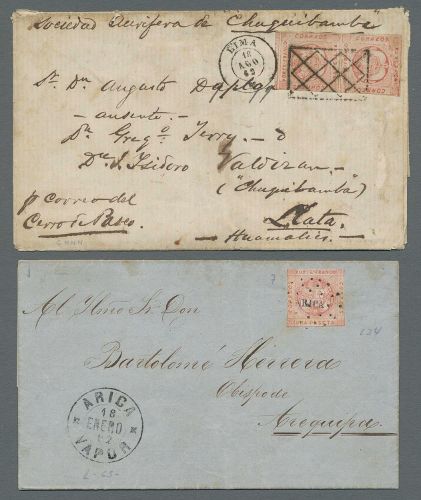 Sociedad Aurifera de "Chuquibamba"
LIMA
18
AGO
62
CORREOS
CORREOS
Sr. Dn. Augusto Dapla
- ausente. -
Dr. Greg.o Terry - ó
Dn. J. Isidoro Valdizan -
("Chuquibamba")
p Correo del
Cerro de Pasco.
Llata.
- Huamalies. -
7
ARICA
UNA PESETA
Al Ilmo Sr. Don
Bartolomé Herrera
Obispo de
Arequipa
ARICA
18
ENERO
62
VAPOR